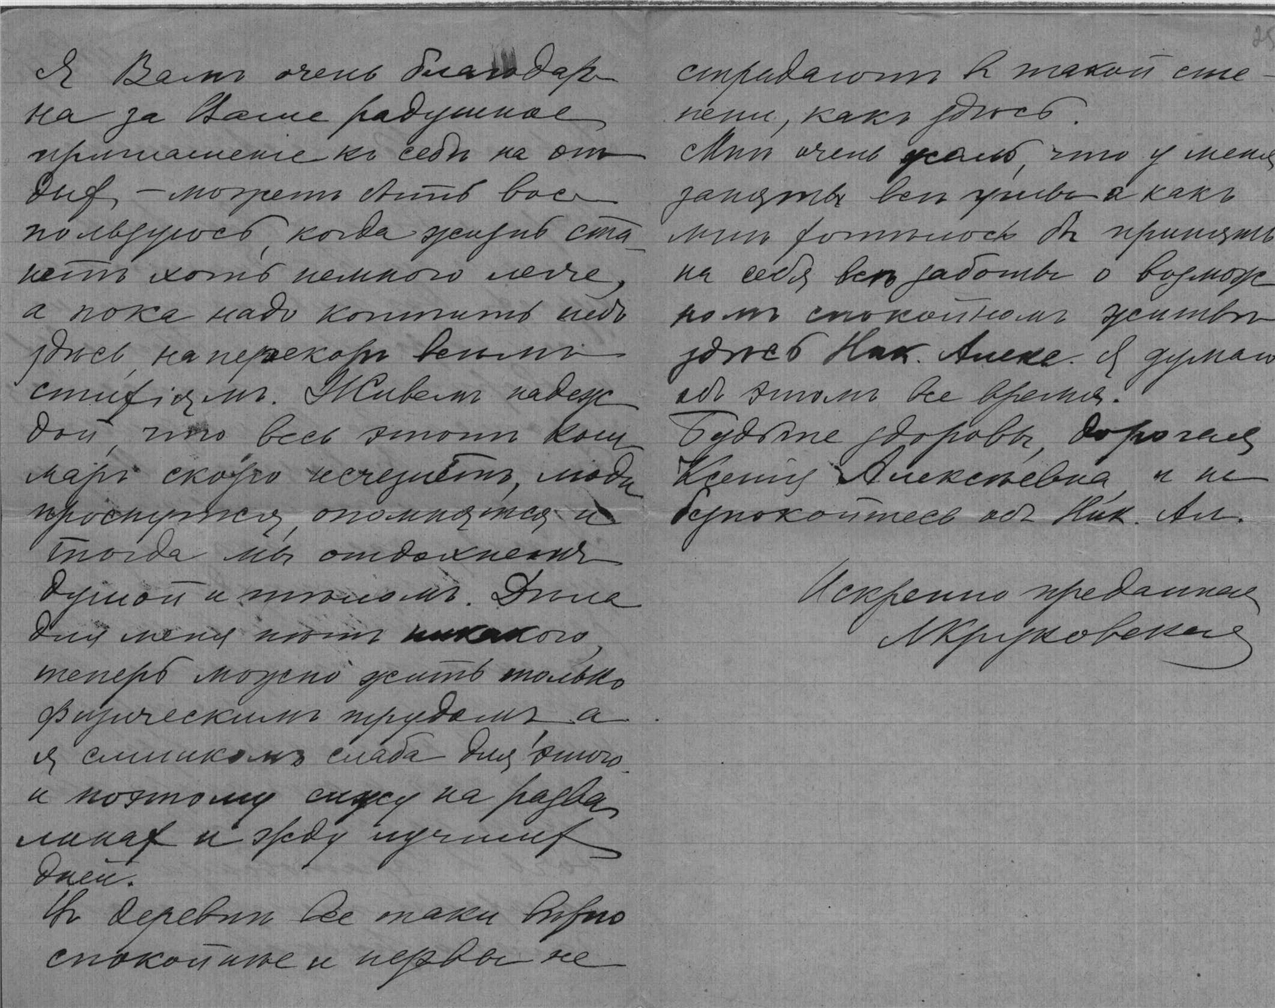 Я Вамъ очень благодар
на за Ваше радушное
приглашеніе къ себѣ на от
дых, – можетъ быть вос
пользуюсь, когда жизнь ста-
нетъ хоть немного легче,
а пока надо коптить небо
здѣсь, наперекоръ всѣмъ
стихіямъ. Живемъ надеж
дой, что весь этотъ кош
маръ скоро исчезнетъ, люди
проснутся, опомнятся и
тогда мы отдохнемъ
душой и тѣломъ. Дѣла
для меня нѣтъ никакого,
теперь можно жить только
физическимъ трудомъ, а
я слишкомъ слаба для этого
и поэтому сижу на разва
линах и жду лучших
дней.
Въ деревнѣ все таки вѣрно
спокойнѣе и нервы не
страдаютъ въ такой сте-
пени, какъ здѣсь.
Мнѣ очень жаль, что у меня
заняты всѣ углы а какъ
мнѣ хотѣлось бъ принять
на себя всѣ заботы о возмож
номъ спокойномъ житьѣ
здѣсь Ник. Алекс. Я думаю
объ этомъ все время.
Будьте здоровы, дорогая
Ксенія Алексѣевна, и не
безпокойтесь объ Ник. Ал.
Искренно преданная
ЛКруковская
25